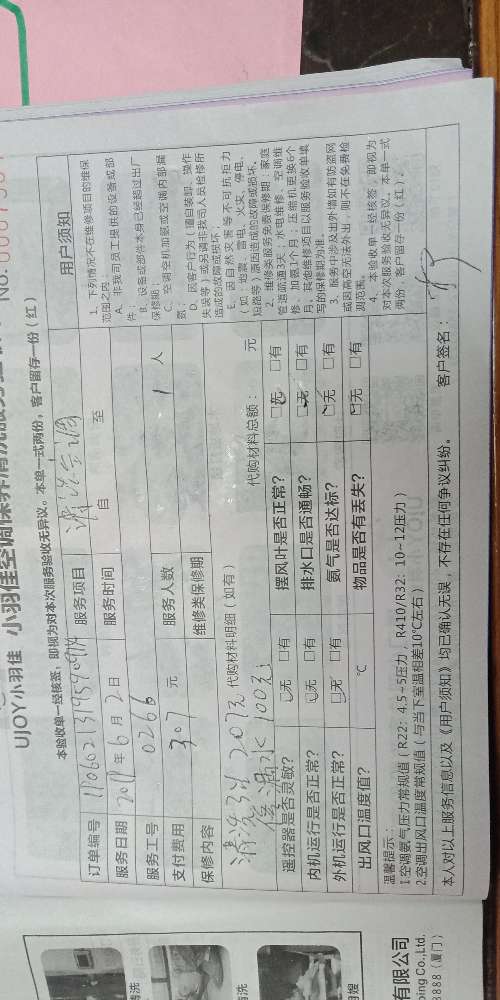 UJOY小羽佳 小羽佳空调保养清洗服务
本验收单一经核签，即视为对本次服务验收无异议。本单一式两份，客户留存一份（红）
订单编号
服务项目 清洗空调
用户须知
服务日期 年6月2日
服务时间 自 至
服务工号 0266
支付费用 307 元
服务人数 1 人
保修内容
维修类保修期
代购材料明细（如有）
代购材料总额： 元
清洗
207元
修漏水 100元
遥控器是否灵敏？ □无 □有
摆风叶是否正常？ □无 □有
内机运行是否正常？ □无 □有
排水口是否通畅？ □无 □有
外机运行是否正常？ □无 □有
氨气是否达标？ □无 □有
出风口温度值？ ℃
物品是否有丢失？ □无 □有
1、下列情况不在维修项目的维保
范围之内：
A、非我司员工提供的设备或部
件；
B、设备或部件本身已经超过出厂
保修期；
C、空调空机加氨或空调内部漏
氨；
D、因客户行为（擅自装卸、操作
失误等）或另请非我司人员检修所
造成的故障或损坏；
E、因自然灾害等不可抗拒力
（如：地震、雷电、火灾、停电、
短路等）原因造成的故障或损坏。
2、维修类服务免费保修期：家庭
管道疏通3天；水电维修、空调维
修、加氨1个月；压缩机更换6个
月。其他维修项目以服务验收单填
写的保修期为准。
3、服务中涉及出外墙如有防盗网
或因高空无法外出，则不在免费检
测范围。
4、本验收单一经核签，即视为
对本次服务验收无异议。本单一式
两份，客户留存一份（红）。
温馨提示：
1.空调氨气压力常规值（R22：4.5~5压力，R410/R32：10~12压力）
2.空调出风口温度常规值（与当下室温相差10℃左右）
本人对以上服务信息以及《用户须知》均已确认无误，不存在任何争议纠纷。
客户签名：
有限公司
ping Co.,Ltd.
8888（厦门）